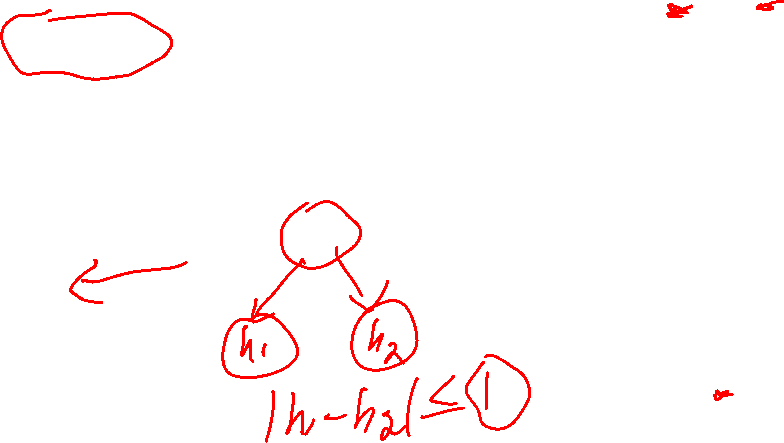 h1 h2
|h1 - h2| ≤ 1